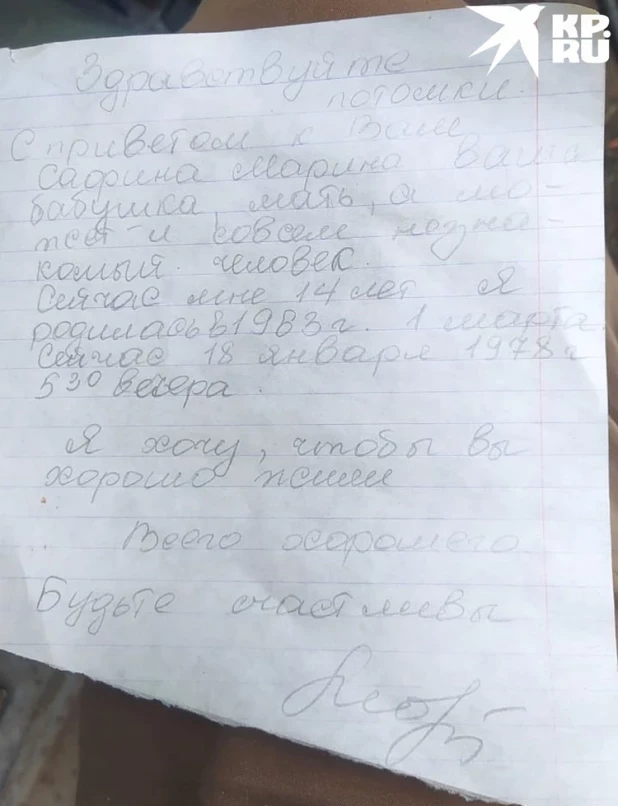 KP.RU
Здравствуйте
потомки.
С приветом к Вам
Сафина Марина ваша
бабушка, мать, а мо-
жет и совсем незна-
комый человек.
Сейчас мне 14 лет Я
родилась в 1983 г. 1 марта.
Сейчас 18 января 1978 г
5 30 вечера.
Я хочу, чтобы вы
хорошо жили
Всего хорошего
Будьте счастливы